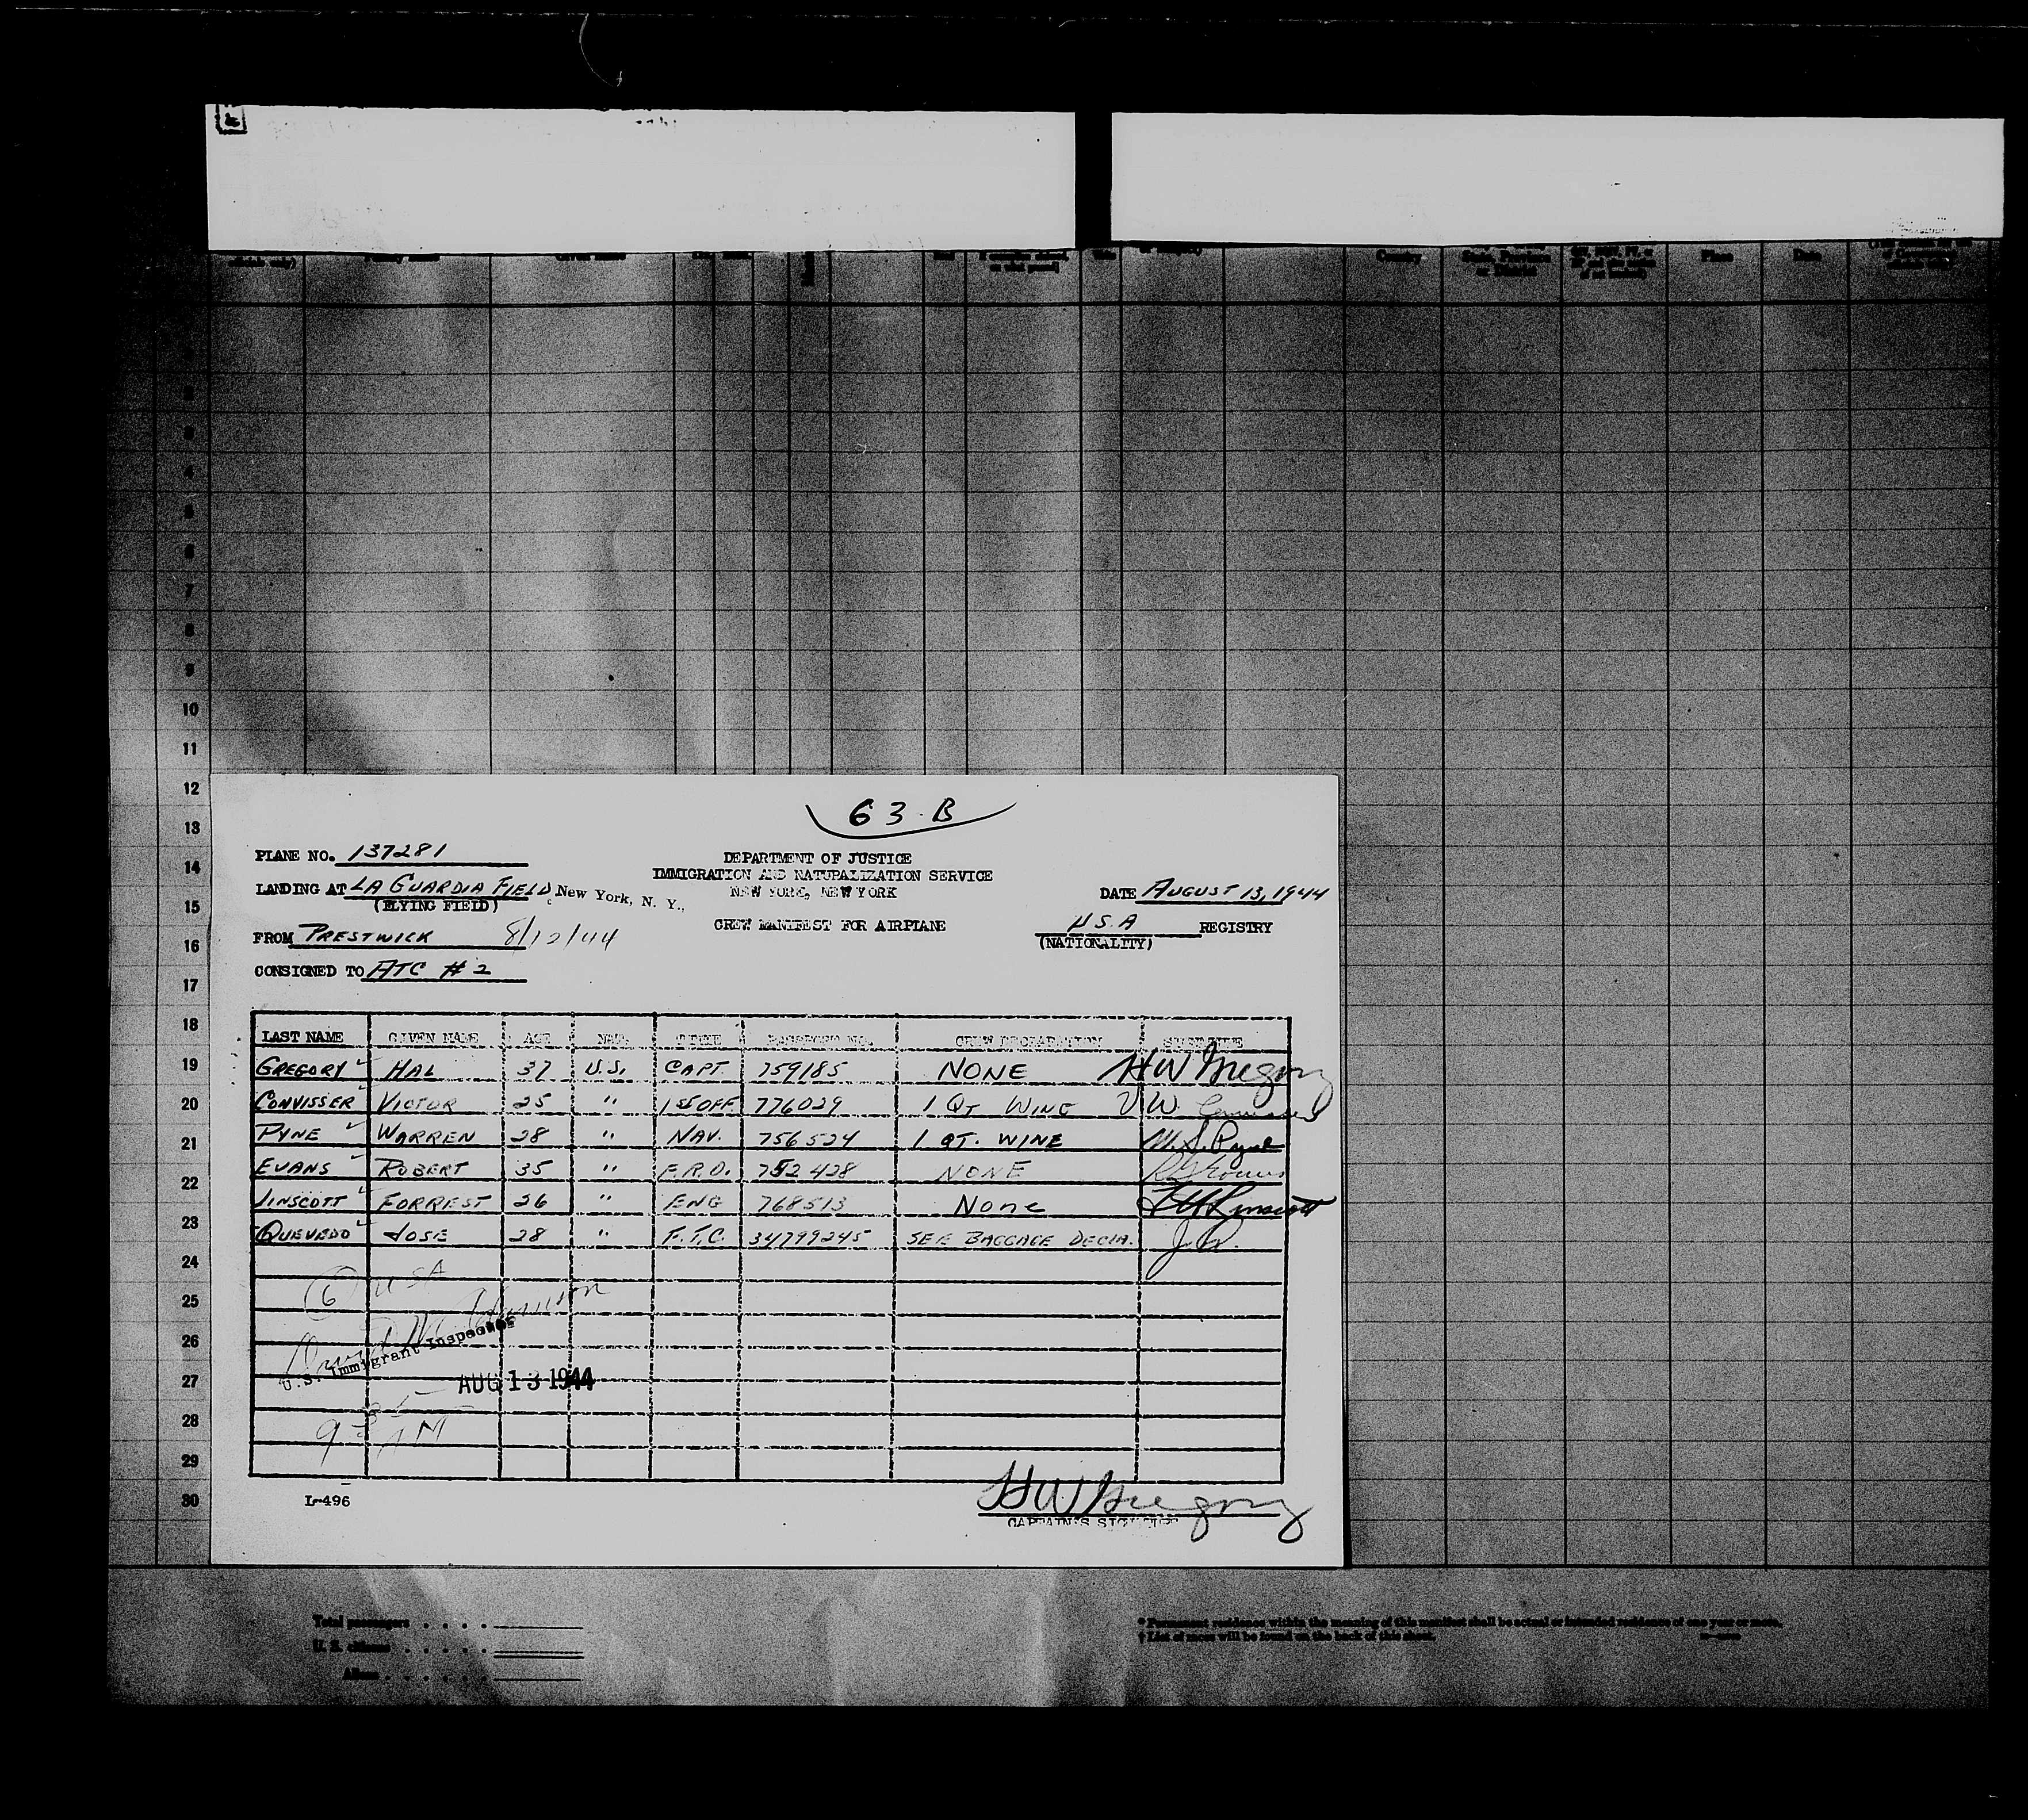 Given name
Country
State, Province or District
Place
Date
1
2
3
4
5
6
7
8
9
10
11
12
13
14
15
16
17
18
19
20
21
22
23
24
25
26
27
28
29
30
63-B
PLANE NO. 137281
DEPARTMENT OF JUSTICE
IMMIGRATION AND NATURALIZATION SERVICE
NEW YORK, NEW YORK
LANDING AT LA GUARDIA FIELD, New York, N. Y.,
(FLYING FIELD)
DATE AUGUST 13, 1944
CREW MANIFEST FOR AIRPLANE
U.S.A REGISTRY
(NATIONALITY)
FROM PRESTWICK 8/12/44
CONSIGNED TO ATC #2
LAST NAME GIVEN NAME AGE NAT. TITLE PASSPORT NO. CREW DECLARATION SIGNATURE
GREGORY HAL 37 U.S. CAPT. 759185 NONE HW Gregory
CONVISSER VICTOR 25 " 1ST OFF 776029 1 QT WINE V W
PYNE WARREN 28 " NAV. 756524 1 QT. WINE W. S. Pyne
EVANS ROBERT 35 " F.R.O. 752428 NONE
LINSCOTT FORREST 26 " ENG 768513 None Linscott
QUEVEDO JOSE 28 " F.T.C. 34799245 SEE BAGGAGE DECLA. J.Q.
6 USA
U.S. Immigrant Inspector
AUG 13 1944
9 35 AM
I-496
HW Gregory
CAPTAIN'S SIGNATURE
Total passengers
U. S. citizens
Aliens
* Permanent residence within the meaning of this manifest shall be actual or intended residence of one year or more.
† List of races will be found on the back of this sheet.